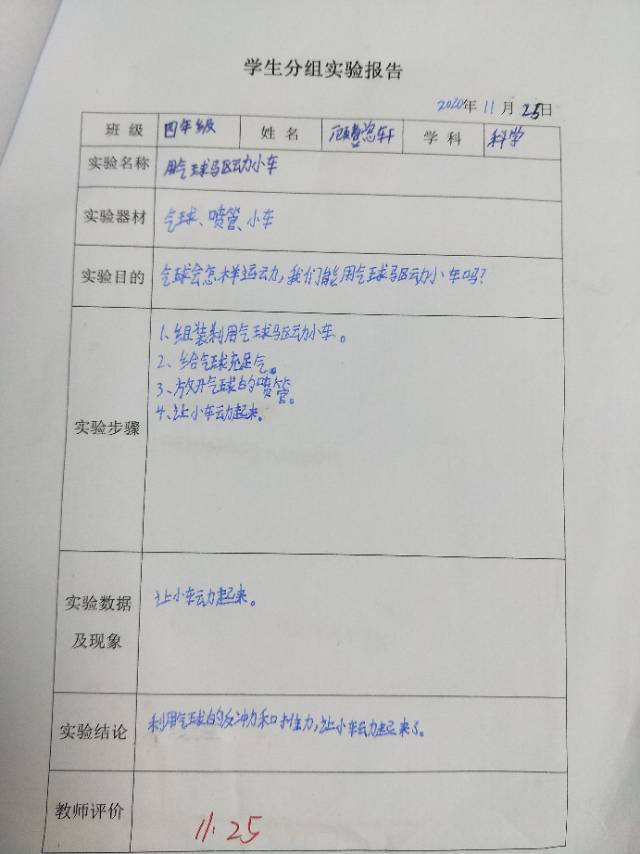 学生分组实验报告
2020年11月25日
班级 四年级 姓名 学科 科学
实验名称 用气球驱动小车
实验器材 气球、喷管、小车
实验目的 气球会怎样运动,我们能用气球驱动小车吗?
实验步骤
1、组装利用气球驱动小车。
2、给气球充足气。
3、放开气球的喷管。
4、让小车动起来。
实验数据及现象 让小车动起来。
实验结论 利用气球的反冲力和推力,让小车动起来了。
教师评价 11.25